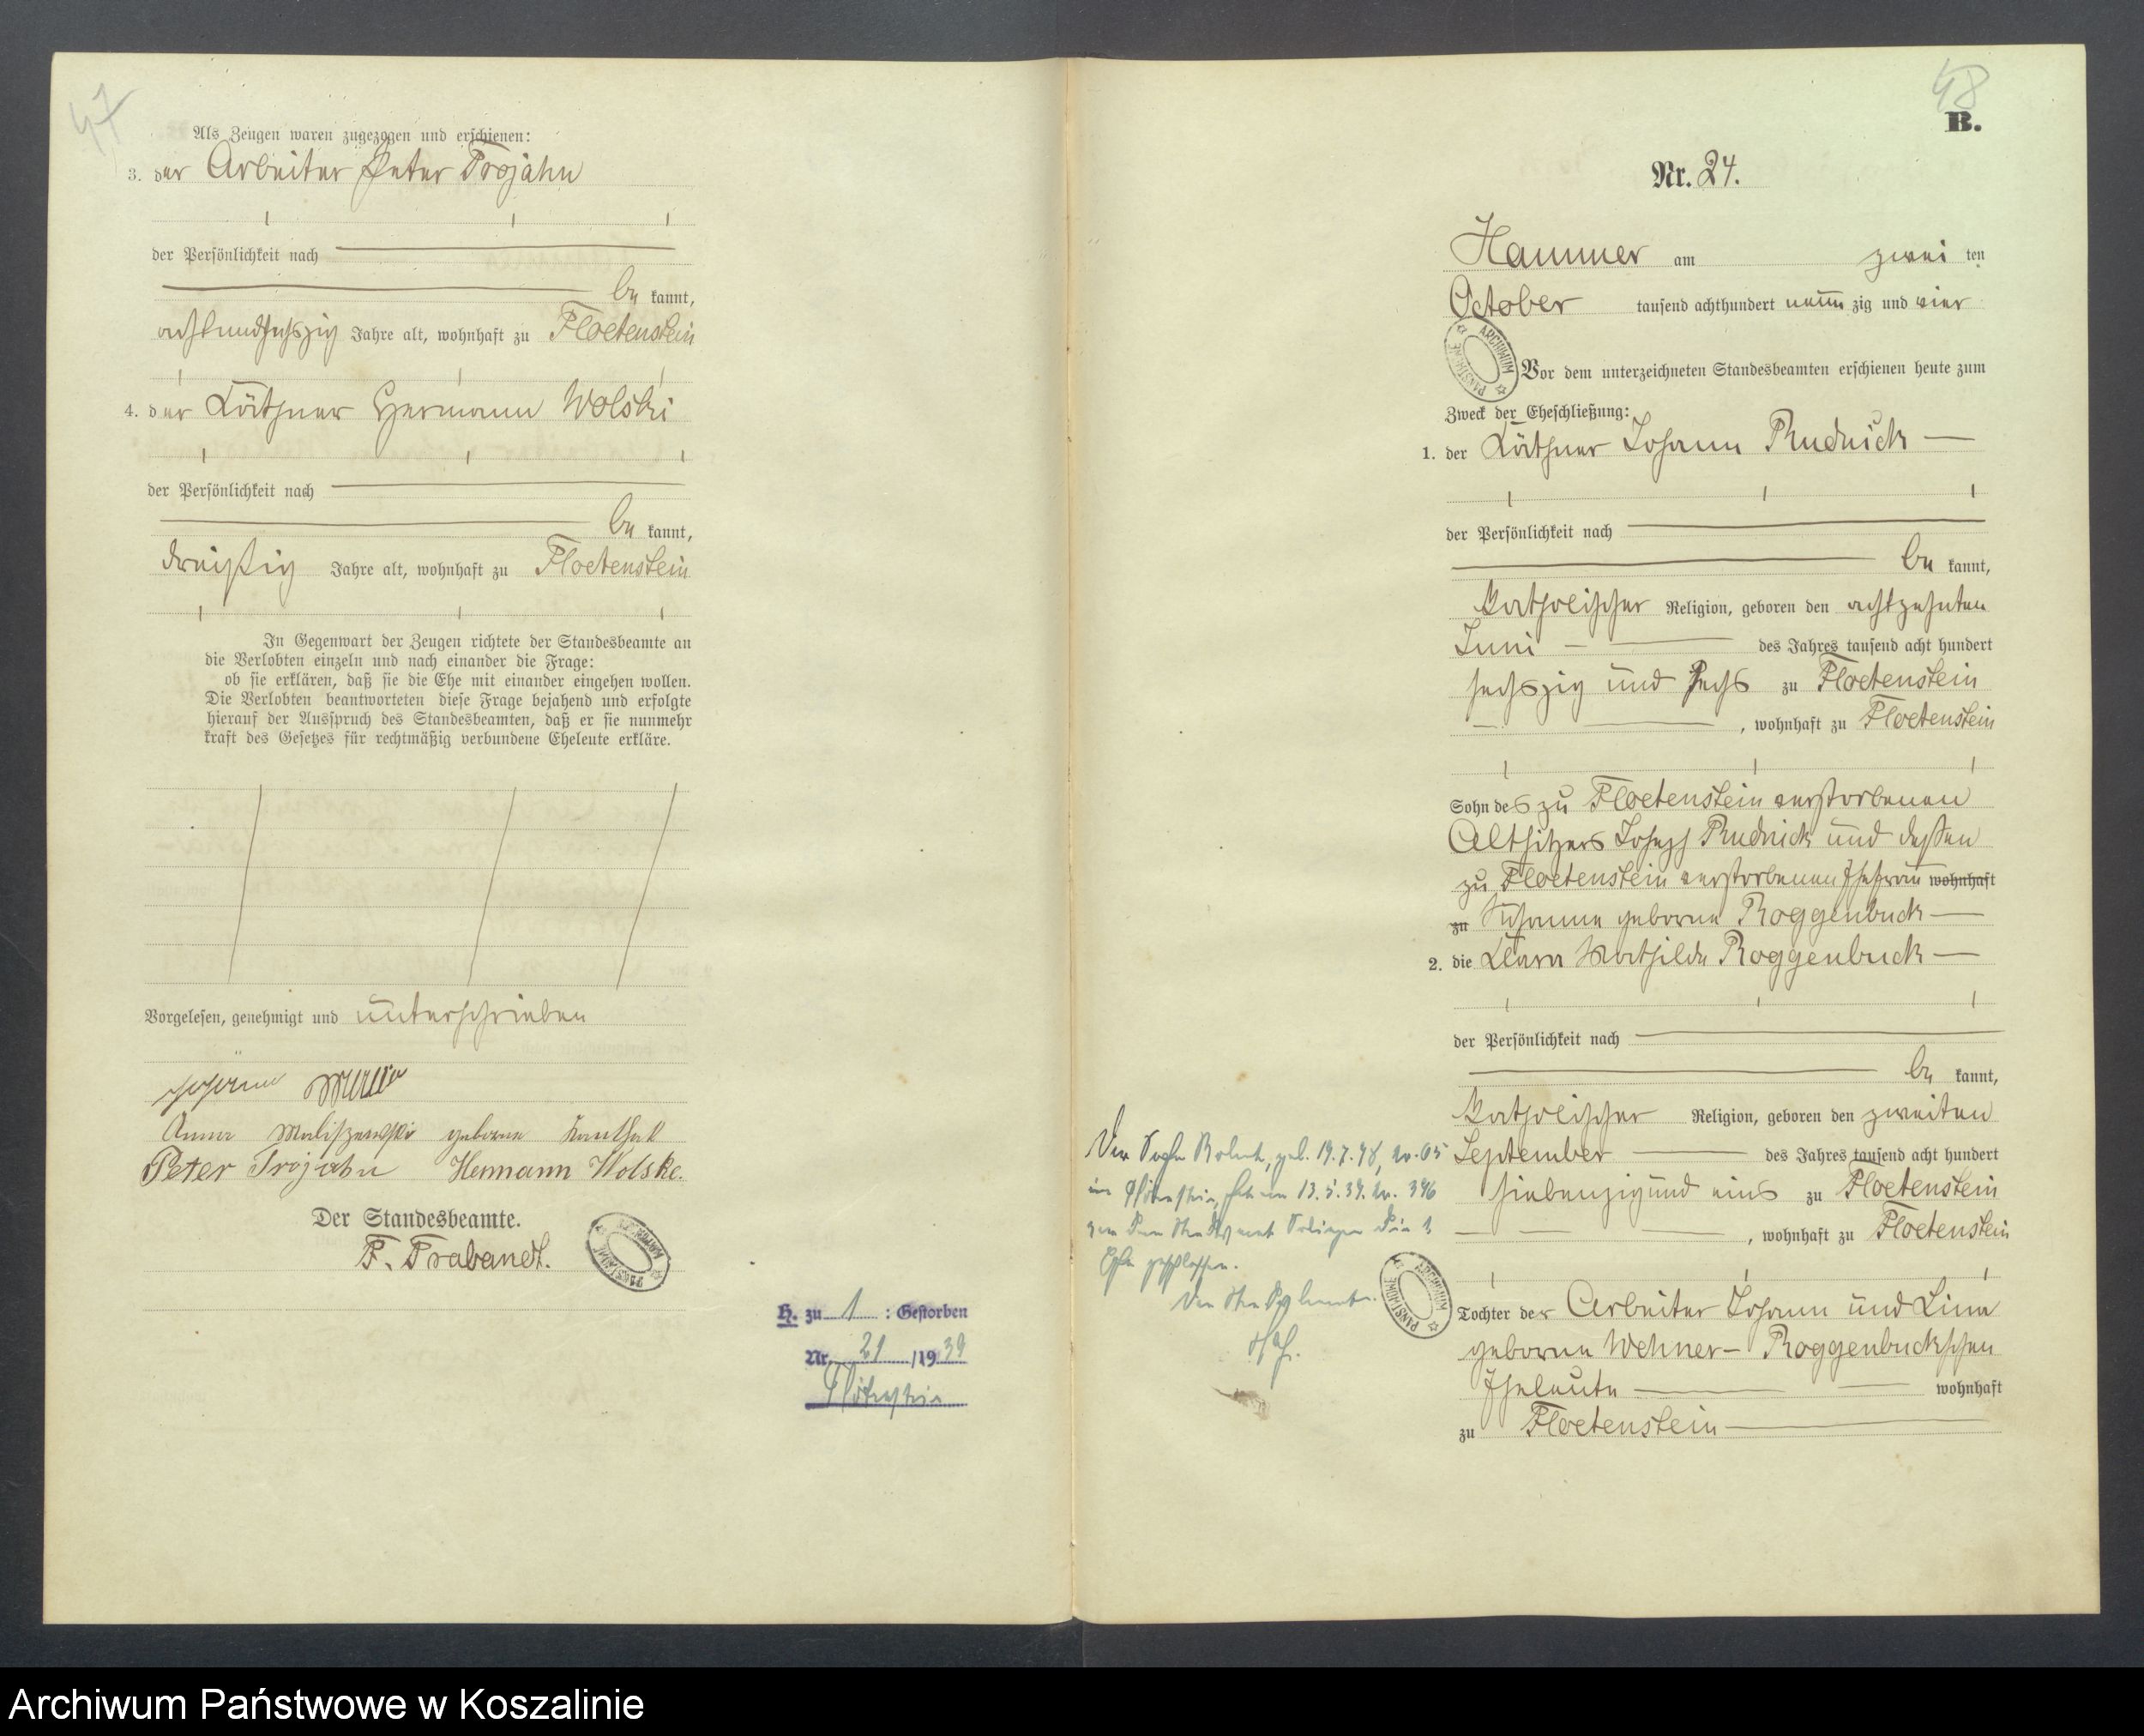 47
Als Zeugen waren zugezogen und erschienen:
3. der Arbeiter Peter Trojahn
der Persönlichkeit nach
be kannt,
achtundsechszig Jahre alt, wohnhaft zu Floetenstein
4. der Käthner Hermann Wolski
der Persönlichkeit nach
be kannt,
dreißig Jahre alt, wohnhaft zu Floetenstein
In Gegenwart der Zeugen richtete der Standesbeamte an
die Verlobten einzeln und nach einander die Frage:
ob sie erklären, daß sie die Ehe mit einander eingehen wollen.
Die Verlobten beantworteten diese Frage bejahend und erfolgte
hierauf der Ausspruch des Standesbeamten, daß er sie nunmehr
kraft des Gesetzes für rechtmäßig verbundene Eheleute erkläre.
Vorgelesen, genehmigt und unterschrieben
Johann
Anna geborne
Peter Trojahn Hermann Wolske.
Der Standesbeamte.
F. Trabandt.
H. zu 1 : Gestorben
Nr. 21 /19 39
Flötenstein
48
B.
Nr. 24.
Hammer am zwei ten
October tausend achthundert neun zig und vier
ARCHIWUM PAŃSTWOWE
Vor dem unterzeichneten Standesbeamten erschienen heute zum
Zweck der Eheschließung:
1. der Käthner Johann Rudnick
der Persönlichkeit nach
be kannt,
katholischer Religion, geboren den achtzehnten
Juni des Jahres tausend acht hundert
sechszig und sechs zu Floetenstein
, wohnhaft zu Floetenstein
Sohn des zu Floetenstein verstorbenen
Altsitzers Joseph Rudnick und dessen
zu Floetenstein verstorbenen Ehefrau wohnhaft
zu Susanna geborne Roggenbuck
2. die Clara Mathilde Roggenbuck
der Persönlichkeit nach
be kannt,
katholischer Religion, geboren den zweiten
September des Jahres tausend acht hundert
siebenzig und eins zu Floetenstein
, wohnhaft zu Floetenstein
Tochter der Arbeiter Johann und Lina
geborne Wehner- Roggenbuckschen
Eheleute wohnhaft
zu Floetenstein
Der Sohn Robert, geb. 19.7.98, Nr. 65
in Flötenstein, hat am 13.5.39. Nr. 396
vor dem Standesamt Solingen die 1.
Ehe geschlossen.
Der Standesbeamte.
ARCHIWUM PAŃSTWOWE
Archiwum Państwowe w Koszalinie